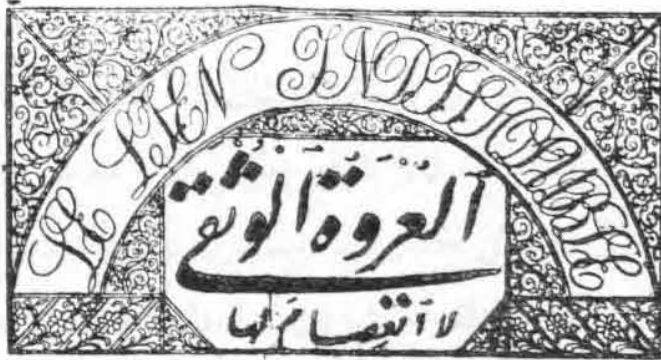 LE LIEN INDISSOLUBLE
العروة الوثقى
لا انفصام لها